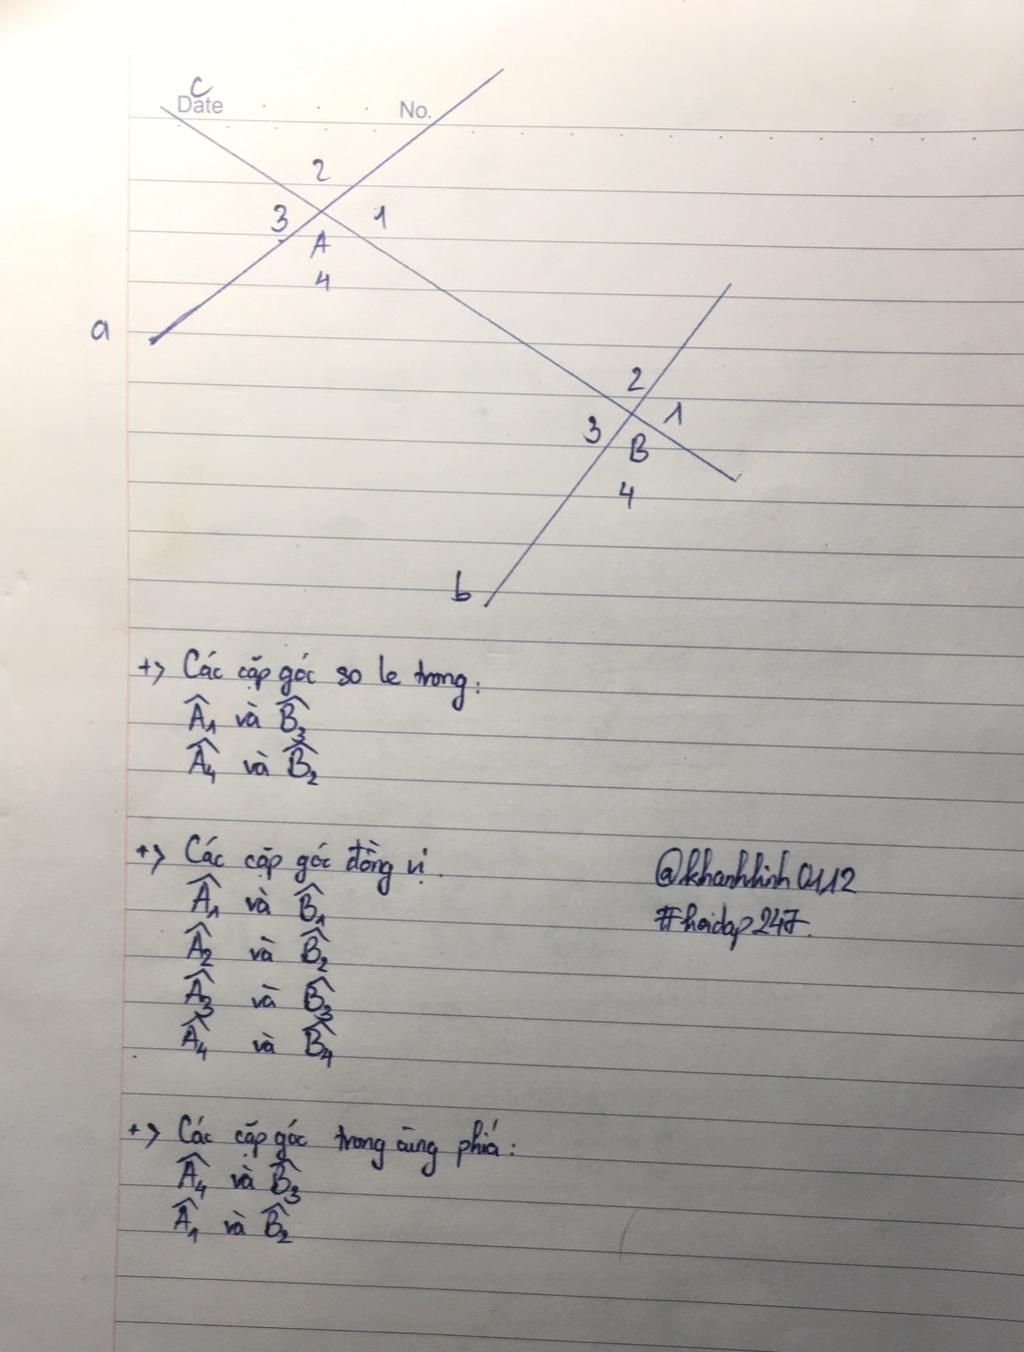 c
Date No.
2
3 1
A
4
a
2
1
3
B
4
b
+> Các cặp góc so le trong:
Â₁ và B̂₃
Â₄ và B̂₂
+> Các cặp góc đồng vị.
Â₁ và B̂₁
Â₂ và B̂₂
Â₃ và B̂₃
Â₄ và B̂₄
@khanhlinh0112
#hoidap247.
+> Các cặp góc trong cùng phía:
Â₄ và B̂₃
Â₁ và B̂₂